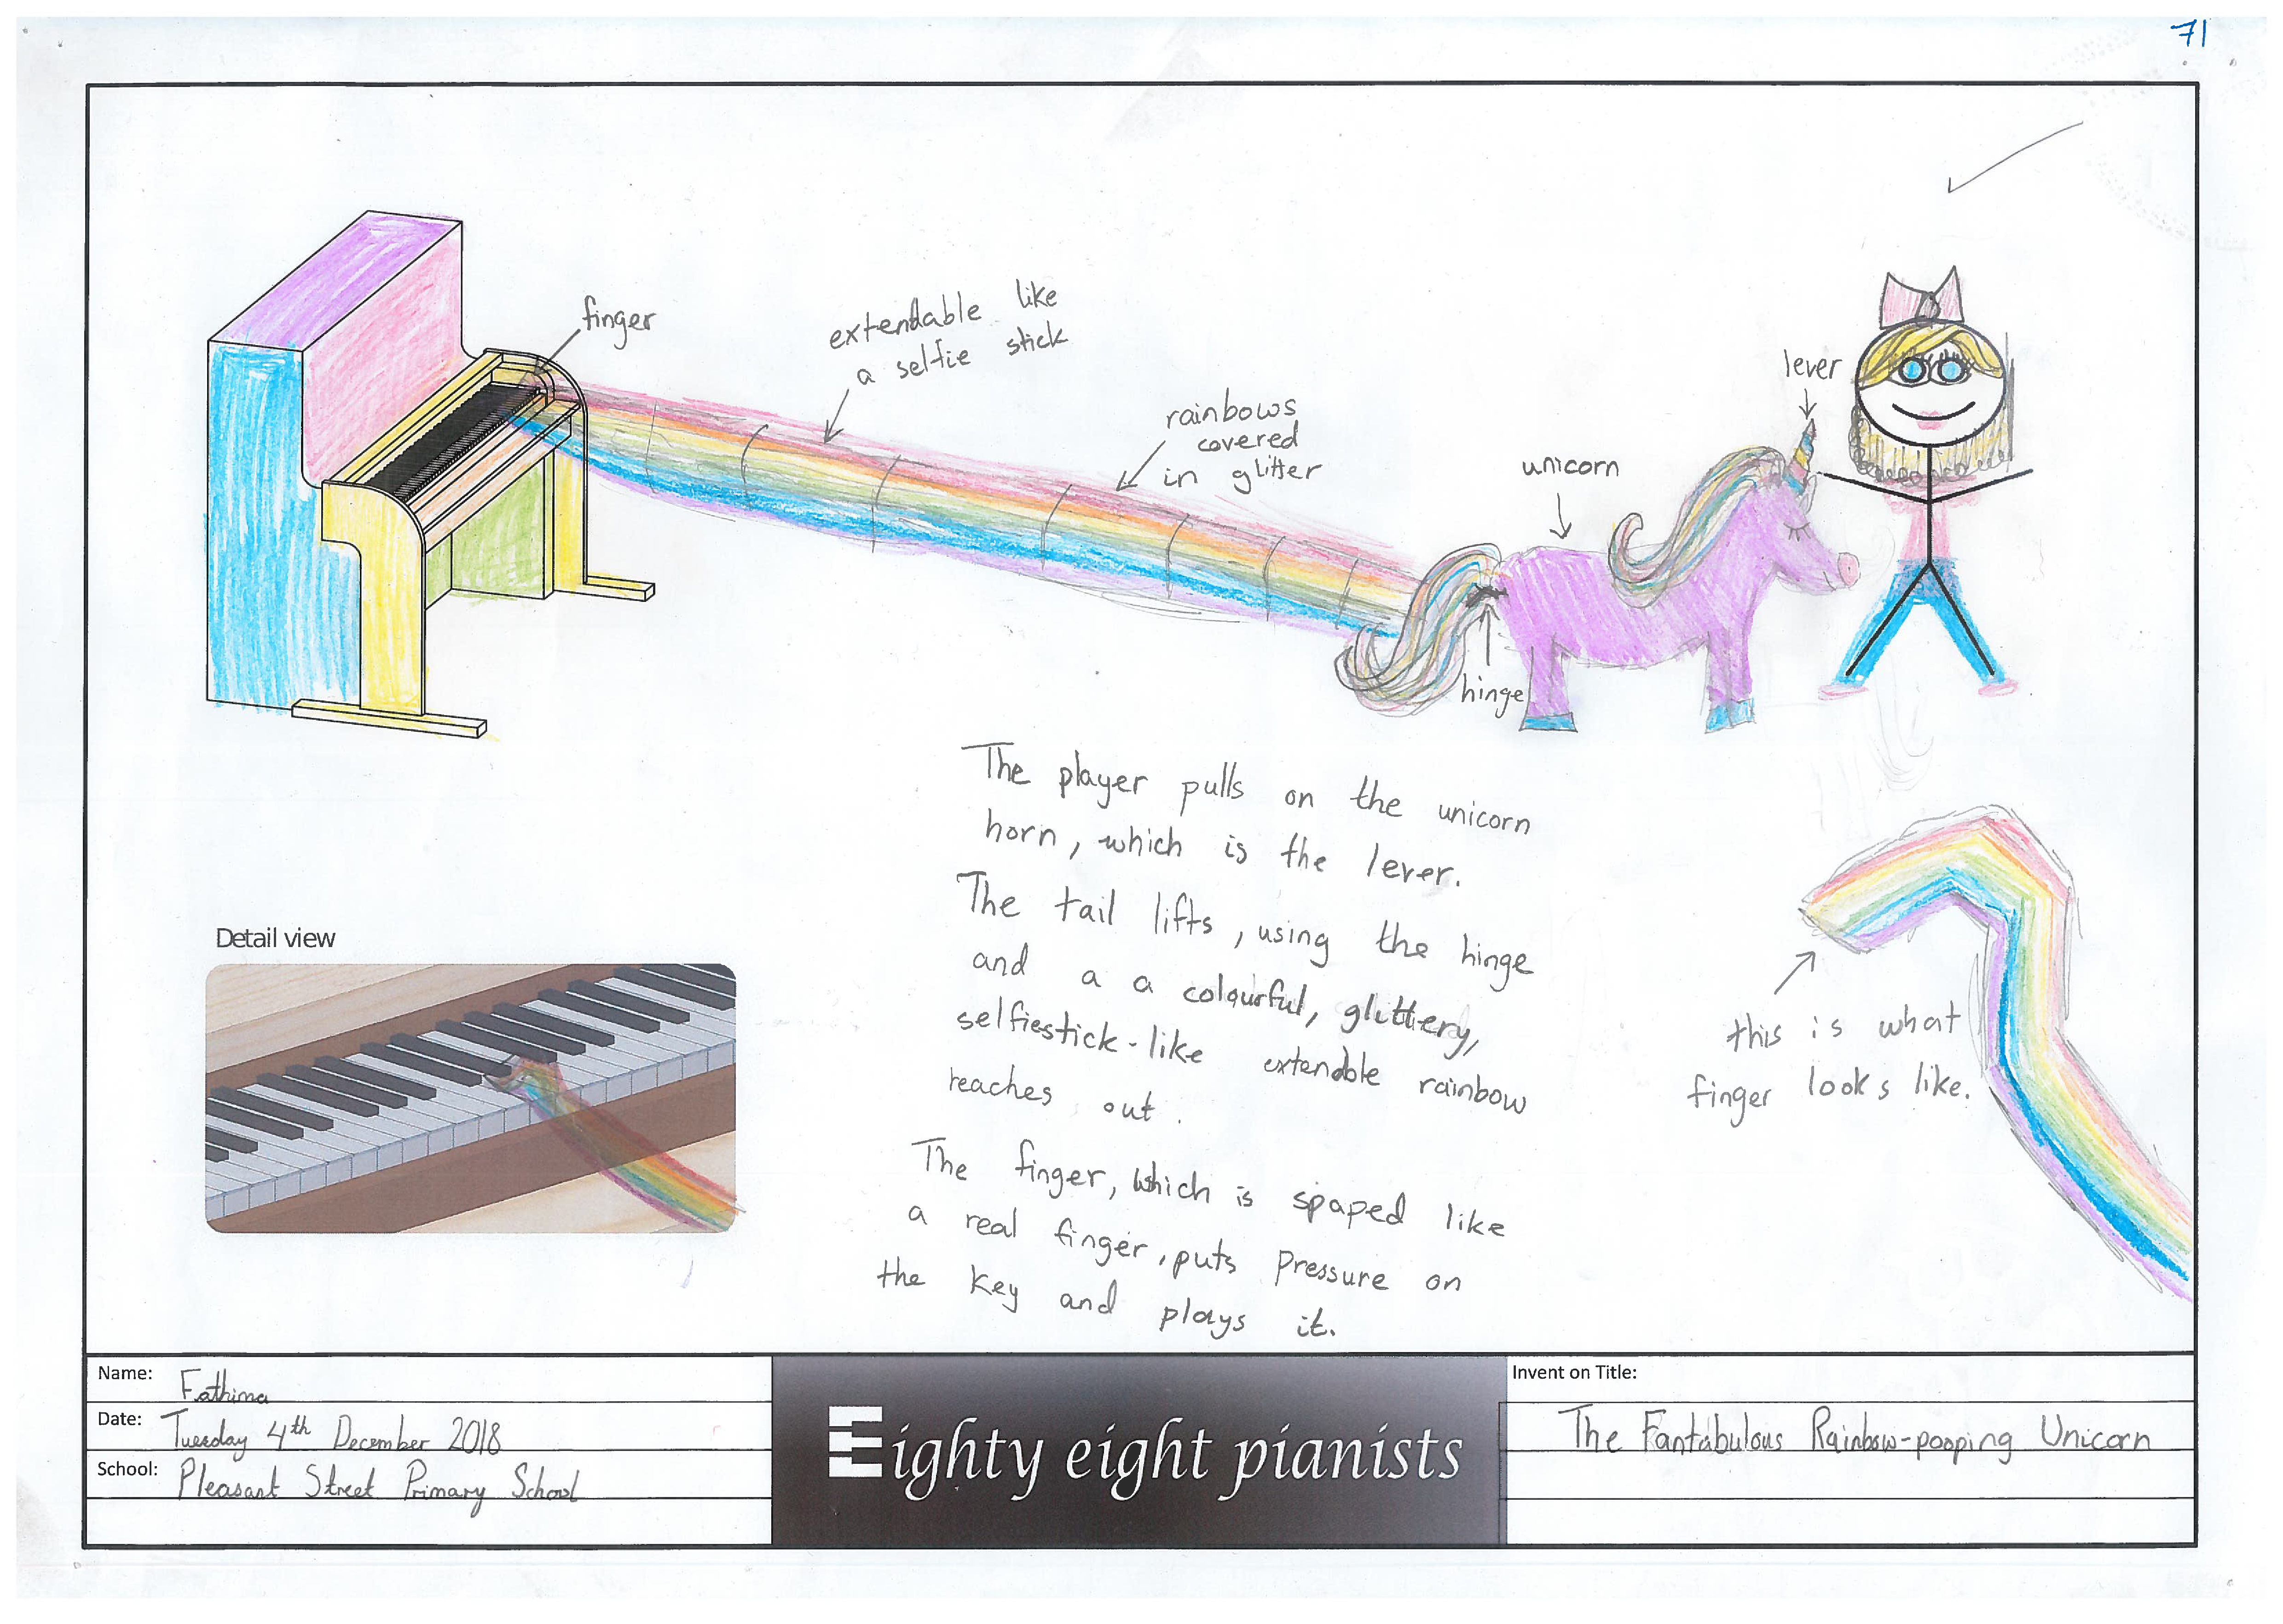 71
finger
extendable like
a selfie stick
rainbows
covered
in glitter
unicorn
lever
hinge
The player pulls on the unicorn
horn, which is the lever.
The tail lifts, using the hinge
and a a colourful, glittery,
selfiestick-like extendable rainbow
reaches out.
The finger, which is spaped like
a real finger, puts pressure on
the key and plays it.
this is what
finger looks like.
Detail view
Name: Fathima
Date: Tuesday 4th December 2018
School: Pleasant Street Primary School
Eighty eight pianists
Invent on Title:
The Fantabulous Rainbow-pooping Unicorn